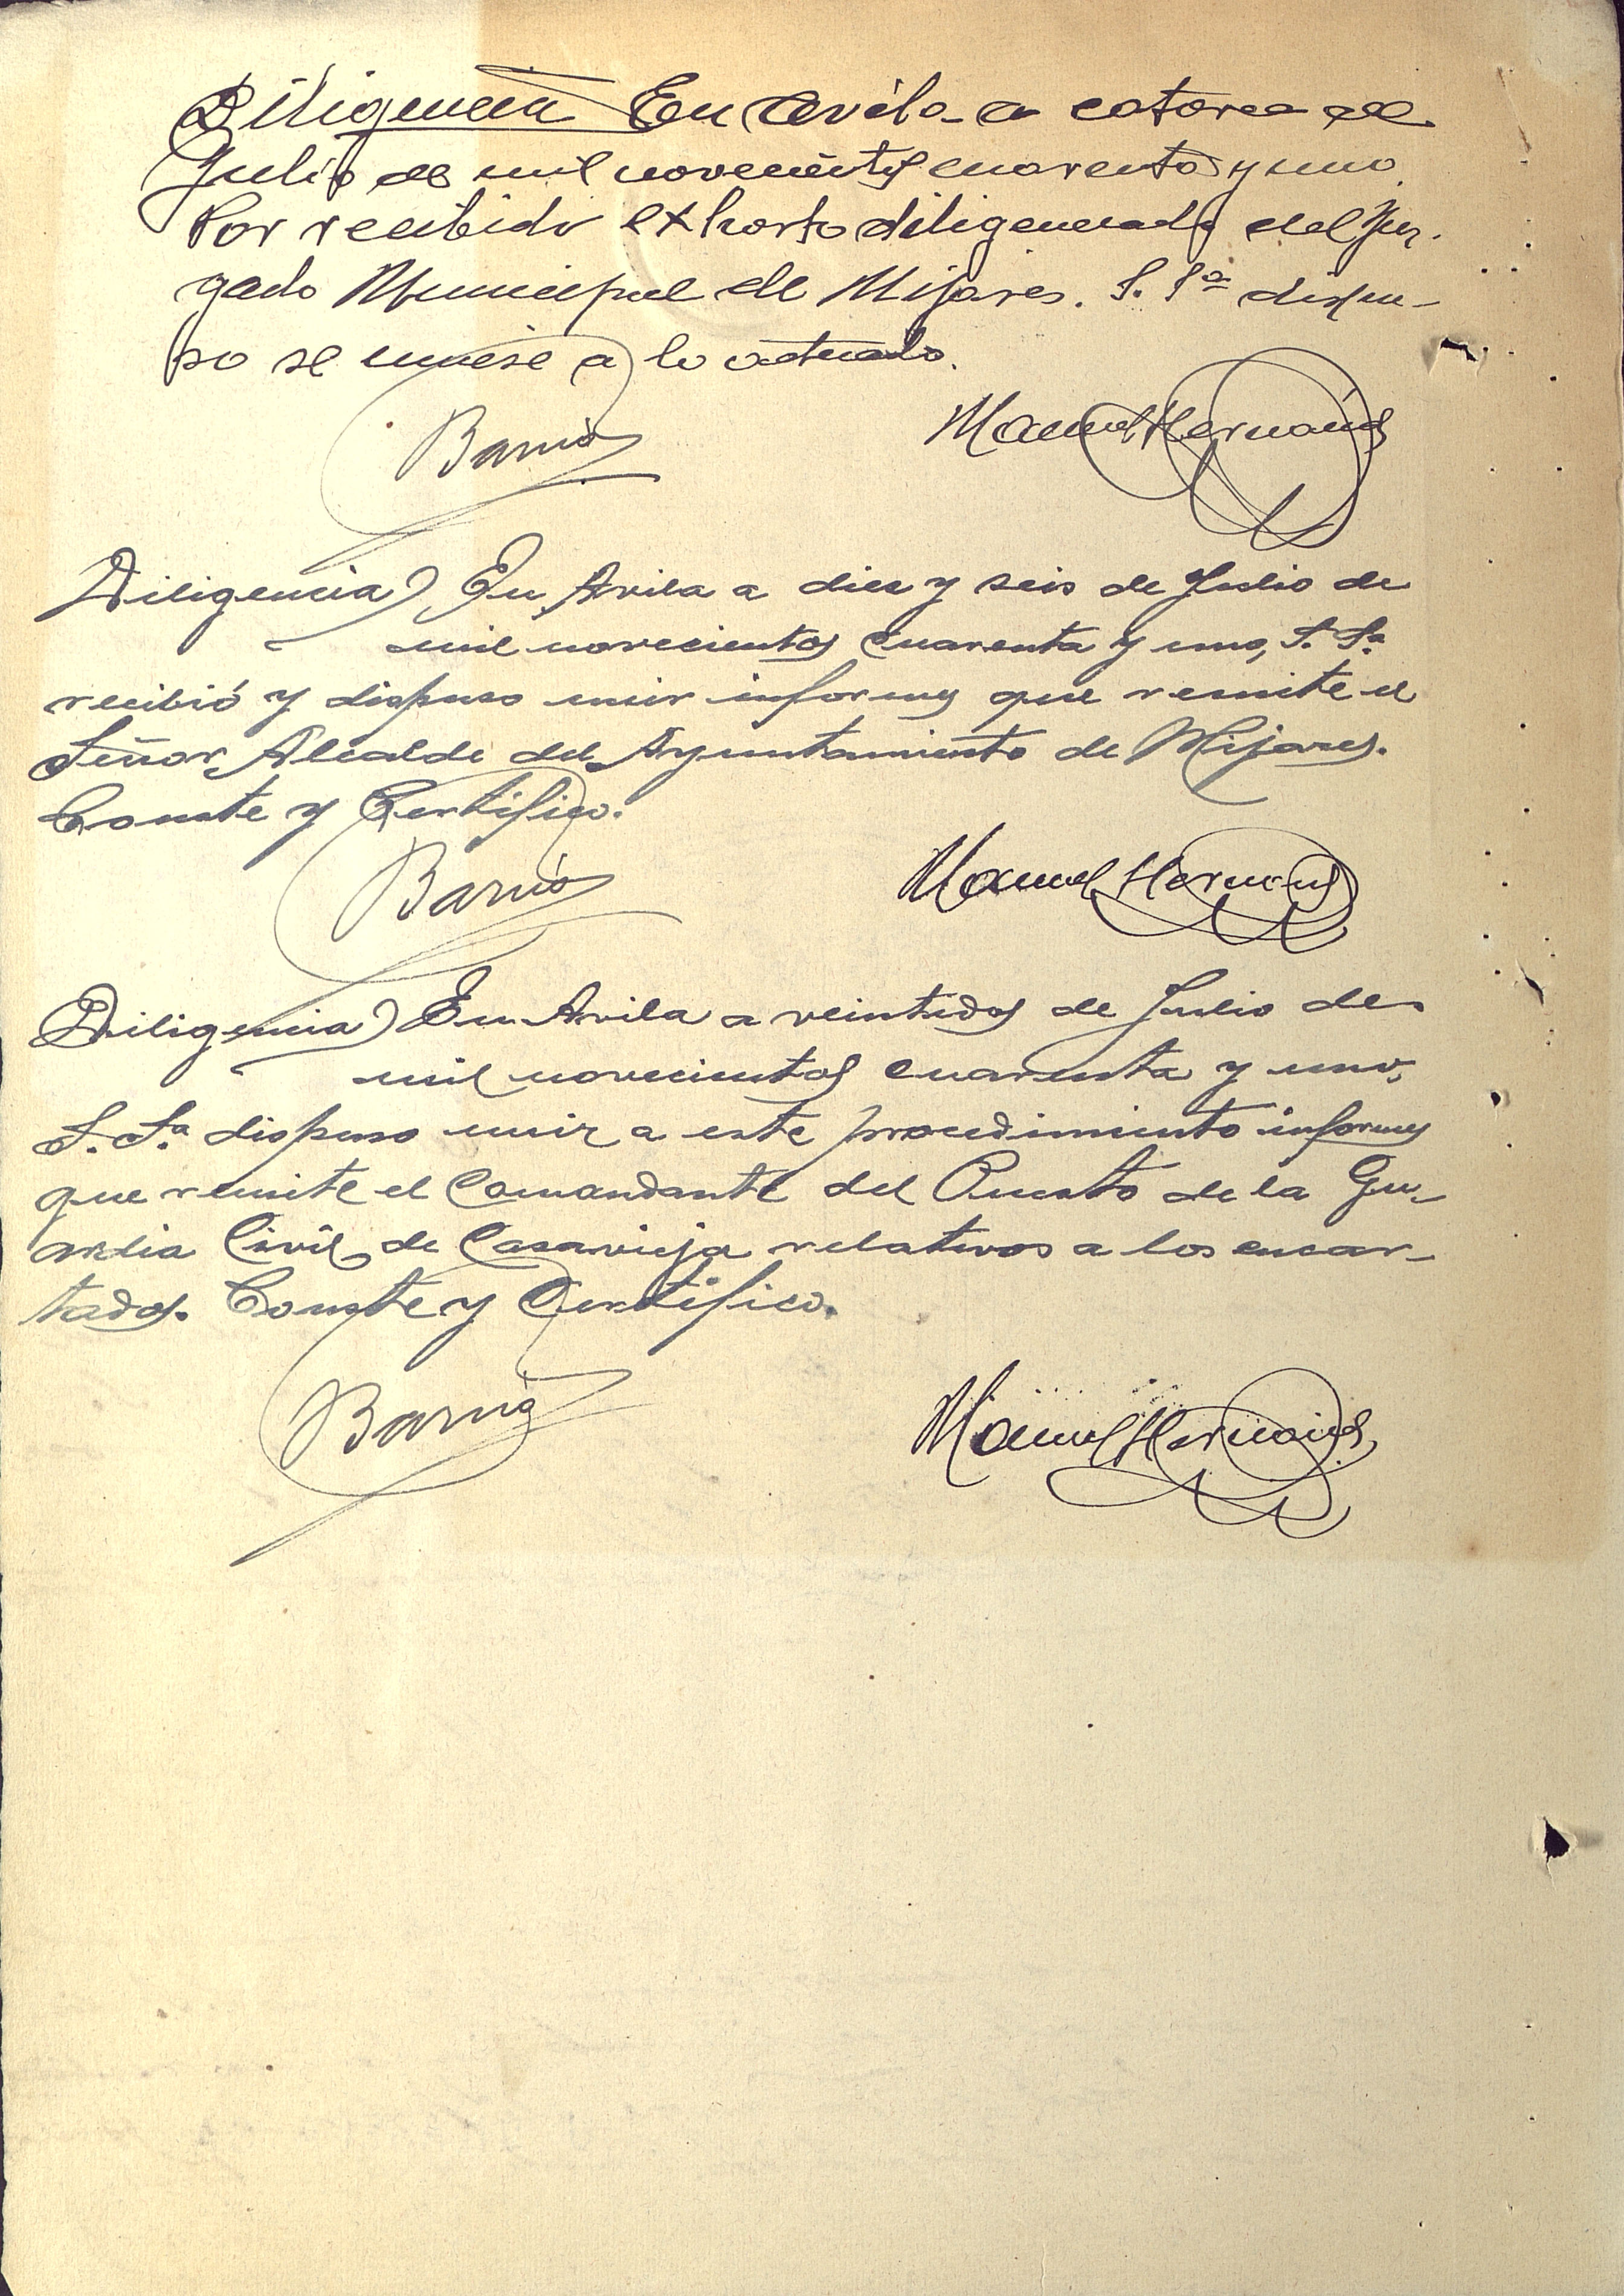 Diligencia En Avila a catorce de
Julio de mil novecientos cuarenta y uno.
Por recibido exhorto diligenciado del Juz-
gado Municipal de Mijares. S. Sª dispu-
so se uniese a lo actuado.
Barrios Manuel Hernández
Diligencia) En Avila a diez y seis de Julio de
mil novecientos cuarenta y uno, S. Sª
recibió y dispuso unir informes que remite el
Señor Alcalde del Ayuntamiento de Mijares.
Conste y Certifico.
Barrios Manuel Hernández
Diligencia) En Avila a veintidos de Julio de
mil novecientos cuarenta y uno,
S. Sª dispuso unir a este procedimiento informes
que remite el Comandante del Puesto de la Gu-
ardia Civil de Casavieja relativos a los encar-
tados. Conste y Certifico.
Barrios Manuel Hernández